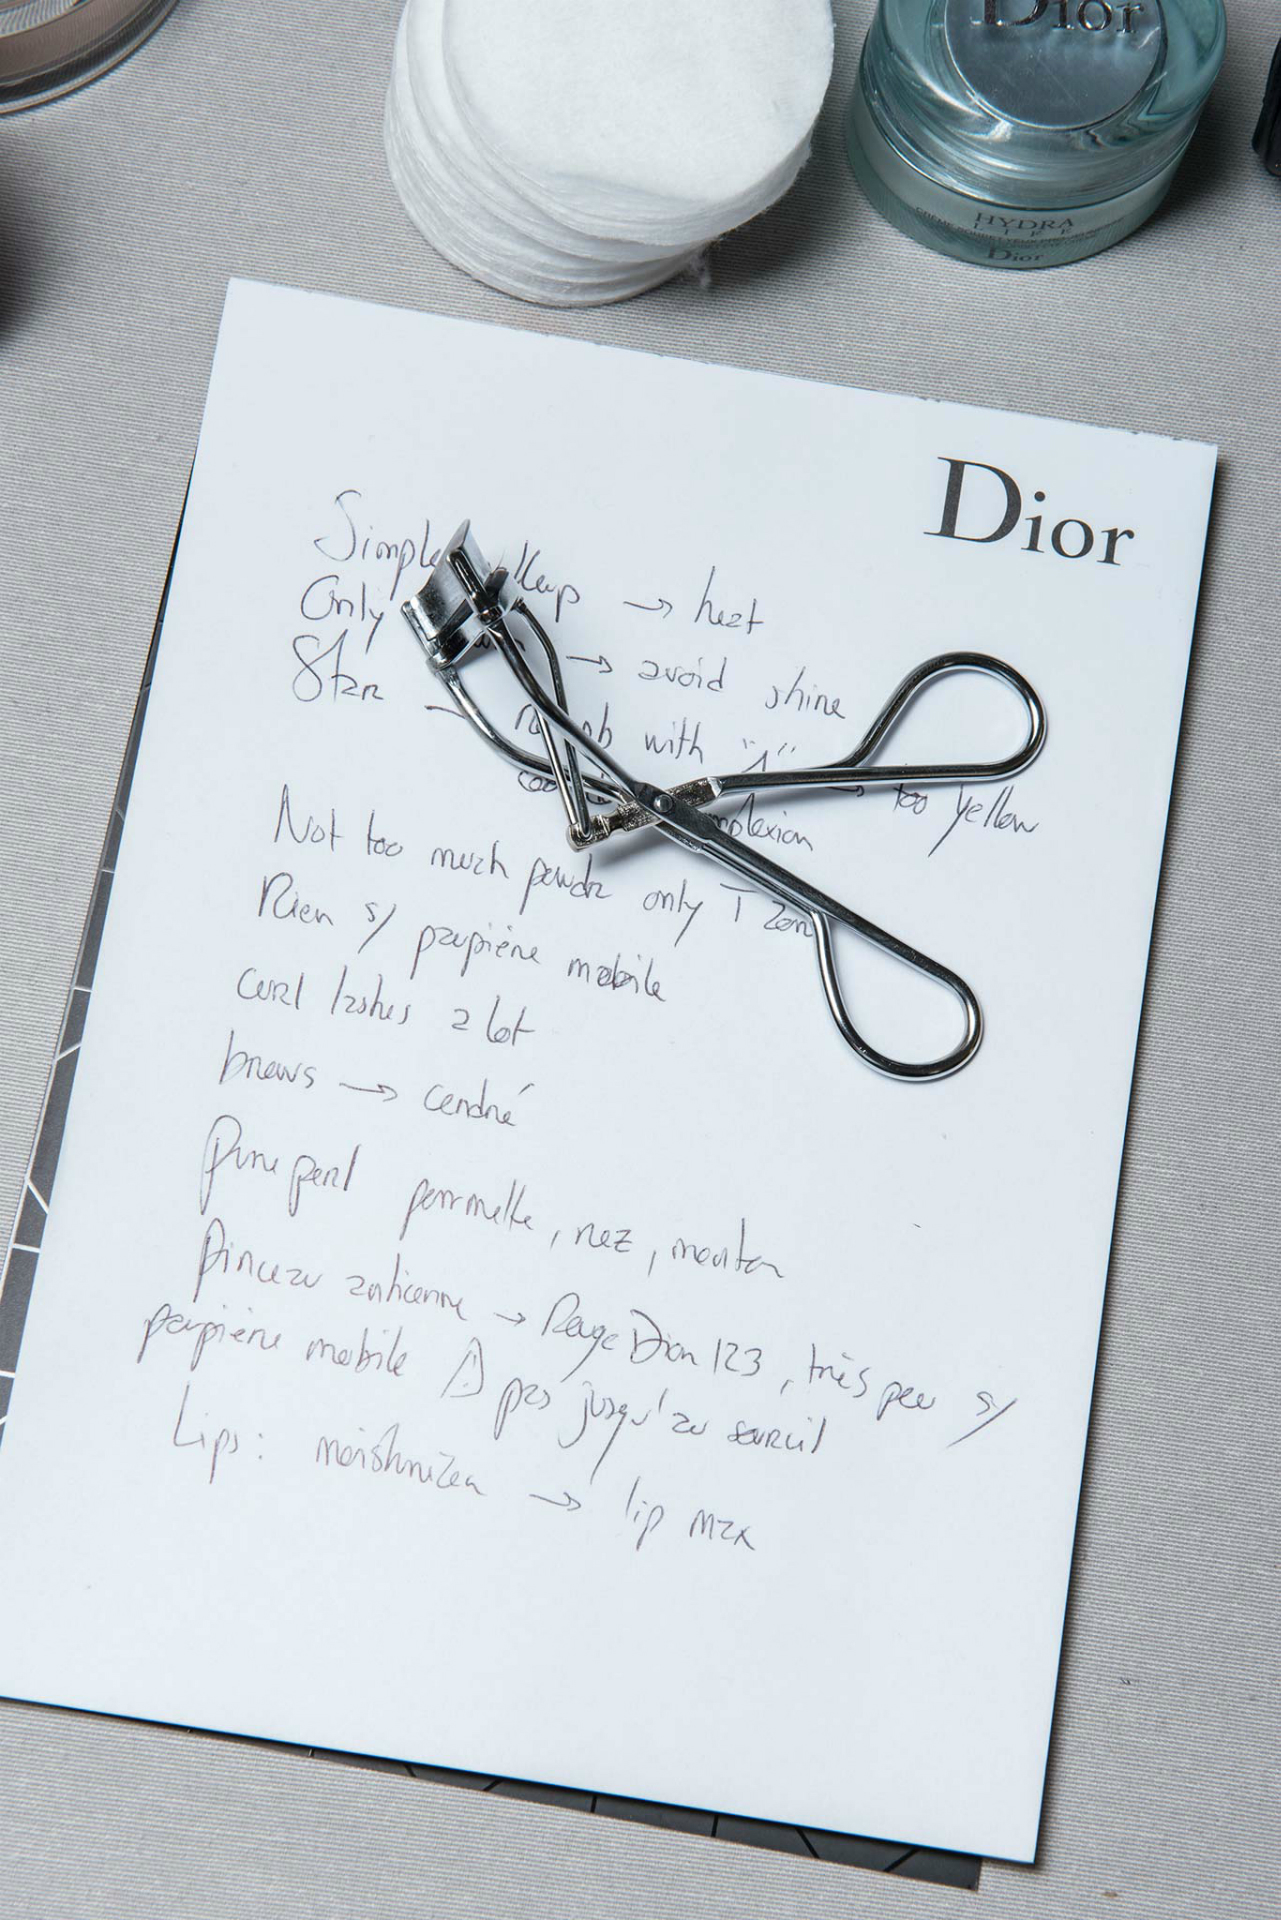 Dior
HYDRA
LIFE
Dior
Dior
Simple → heat
Only → avoid shine
Star → with "1" → too yellow
complexion
Not too much powder only T zone
Rien s/ paupière mobile
curl lashes a lot
brows → cendré
pommette, nez, menton
Pinceau → Rouge Dior 123, très peu s/
paupière mobile ⚠ pas jusqu'au sourcil
Lips: moisturizer → lip max